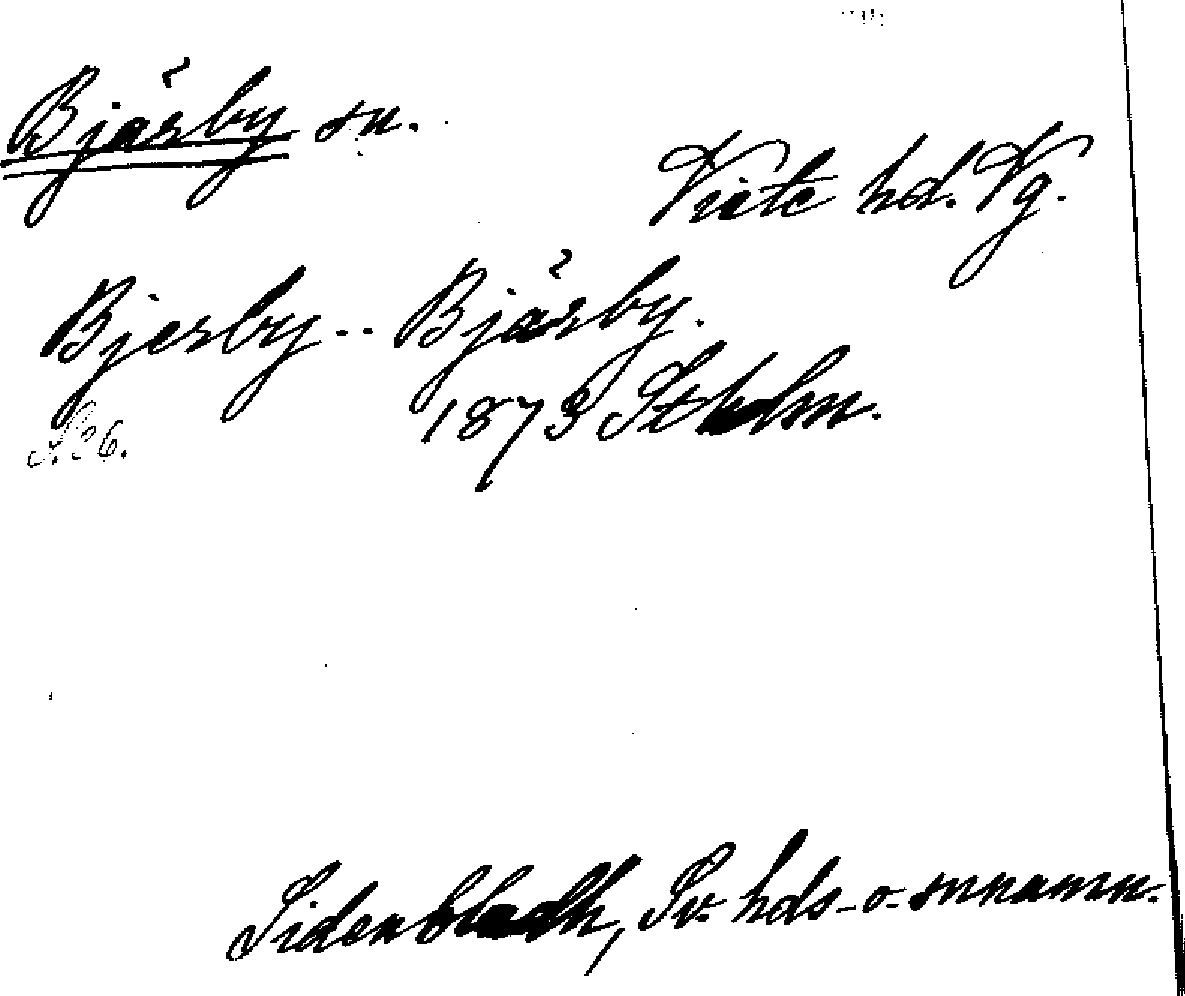 Bjärby sn.
Viste hd. Vg.
Bjerby -- Bjärby.
1873 Stholm.
S. 26.
Sidenbladh, Sv. hds- o. snnamn.